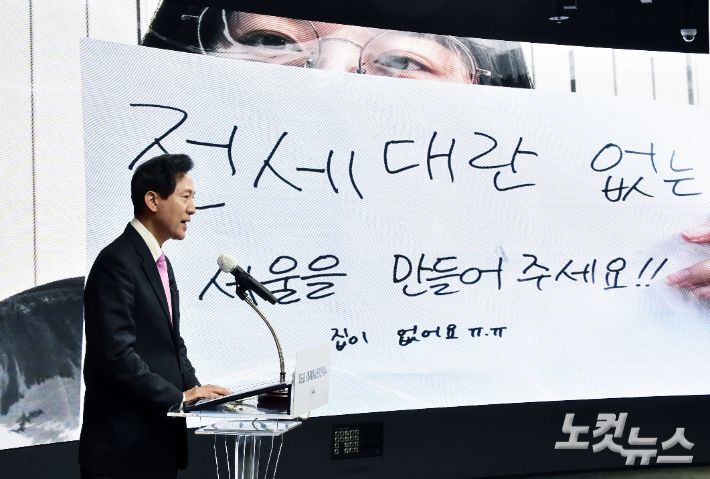 전세대란 없는
서울을 만들어주세요!!
집이 없어요 ㅠ.ㅠ
노컷뉴스